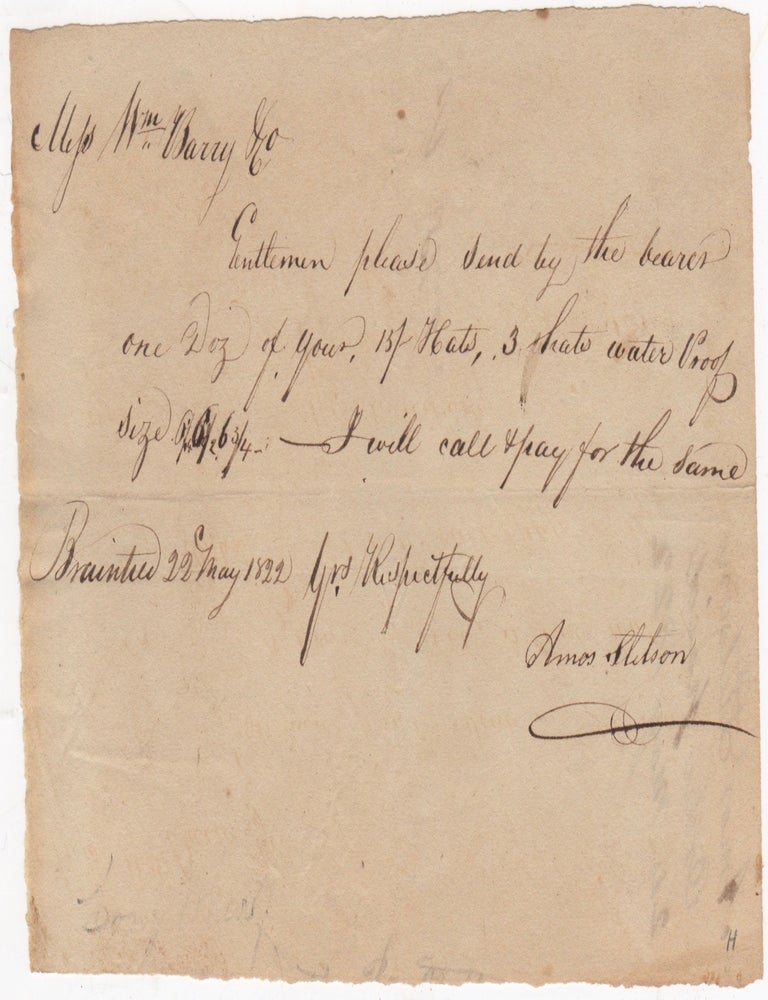 Mess Wm Barry & Co
Gentlemen please send by the bearer
one Doz of your, 15/ Hats, 3 hats water Proof
size 6 1/2 6 3/4 - I will call & pay for the same
Braintree 22 May 1822 Yrs Respectfully
Amos Stetson
H